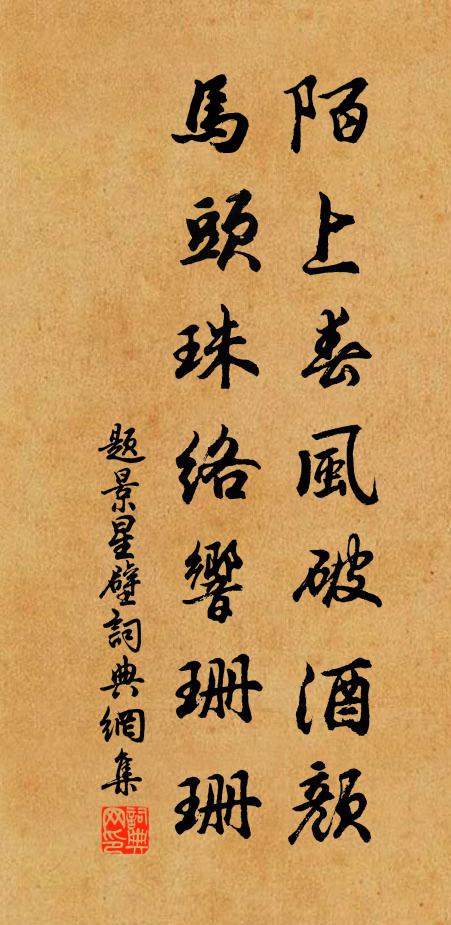 陌上春風破酒顏
馬頭珠絡響珊珊
題景星壁詞典網集
詞典網印